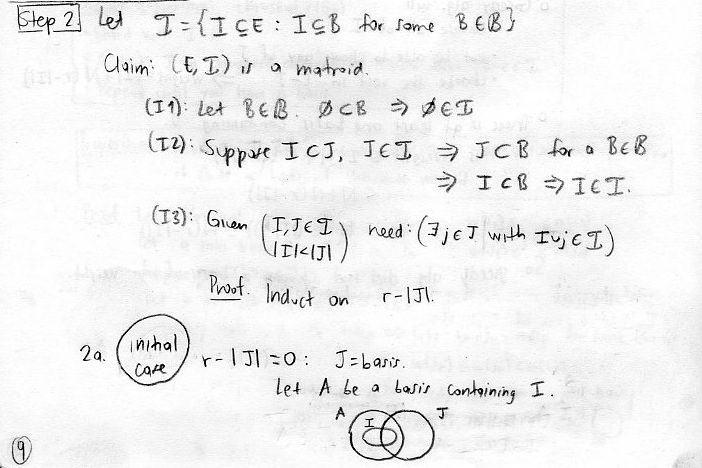 Step 2 Let I = { I ⊆ E : I ⊆ B for some B ∈ 𝓑 }
Claim: (E, I) is a matroid.
(I1): Let B ∈ 𝓑. ∅ ⊂ B ⇒ ∅ ∈ I
(I2): Suppose I ⊂ J, J ∈ I ⇒ J ⊂ B for a B ∈ 𝓑
⇒ I ⊂ B ⇒ I ∈ I.
(I3): Given ( I, J ∈ I |I| < |J| ) need: (∃ j ∈ J with I ∪ j ∈ I)
Proof. Induct on r-|J|.
2a. initial case r-|J| = 0 : J = basis.
Let A be a basis containing I.
A I J
9